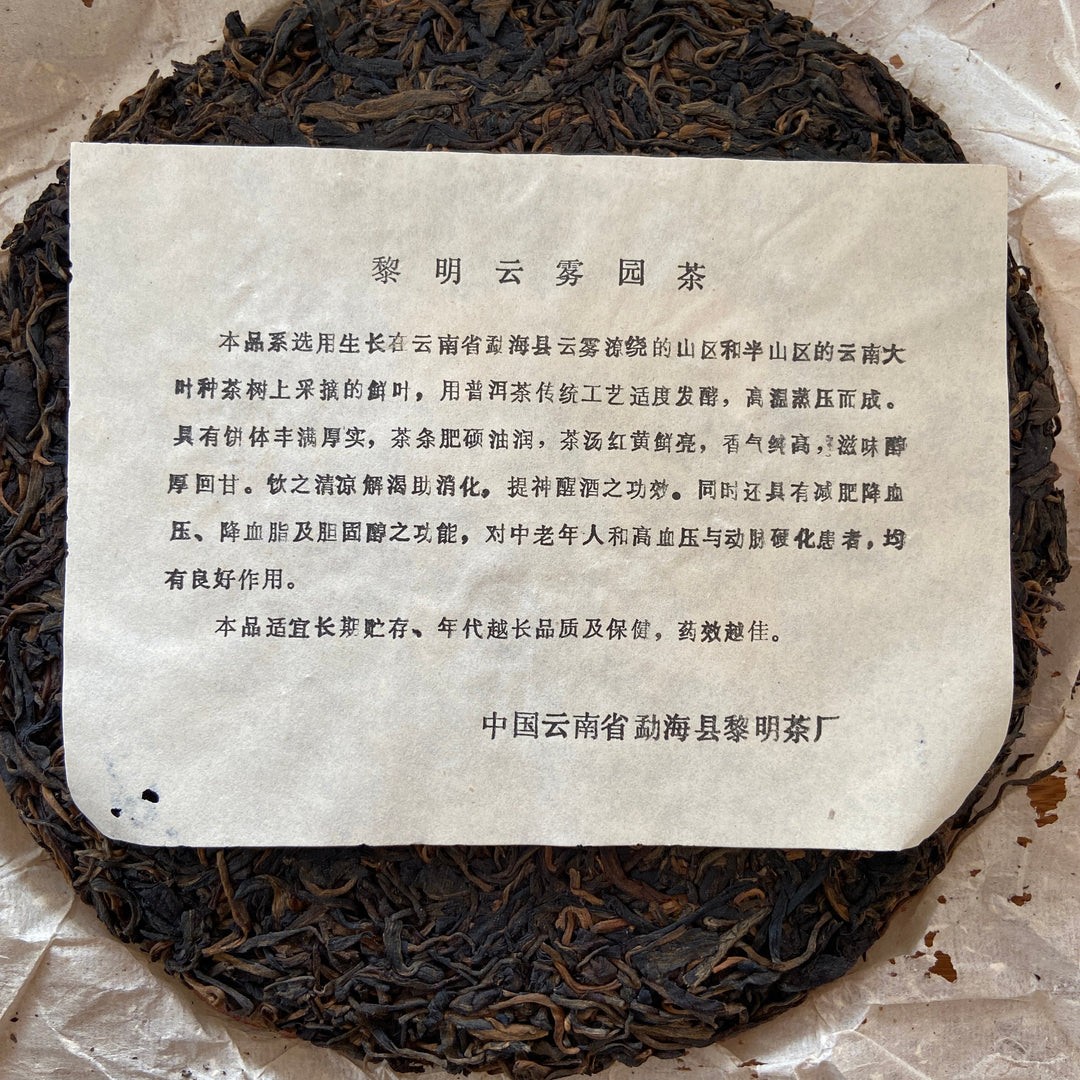 黎明云雾园茶
本品系选用生长在云南省勐海县云雾潦绕的山区和半山区的云南大
叶种茶树上采摘的鲜叶，用普洱茶传统工艺适度发酵，高温蒸压而成。
具有饼体丰满厚实，茶条肥硕油润，茶汤红黄鲜亮，香气纯高，滋味醇
厚回甘。饮之清凉解渴助消化，提神醒酒之功效。同时还具有减肥降血
压、降血脂及胆固醇之功能，对中老年人和高血压与动脉硬化患者，均
有良好作用。
本品适宜长期贮存、年代越长品质及保健，药效越佳。
中国云南省勐海县黎明茶厂